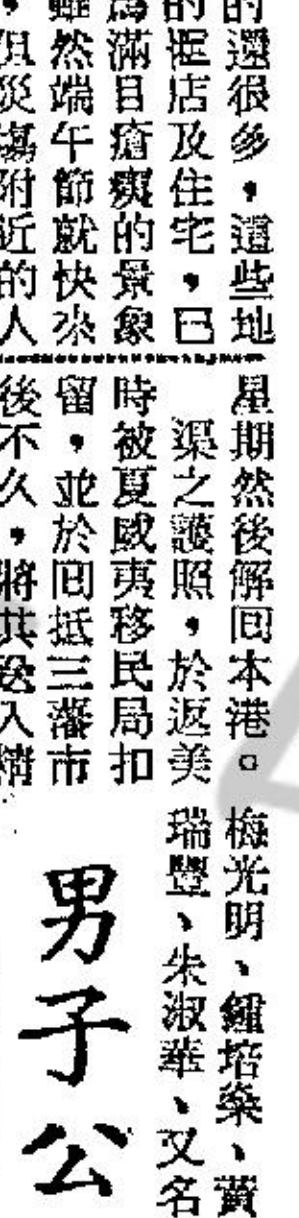 的還很多，這些地
的框店及住宅，已
為滿目瘡痍的景象
雖然端午節就快來
，但災塲附近的人
星期然後解回本港。
渠之護照，於返美
時被夏威夷移民局扣
留，並於回抵三藩市
後不久，將其送入精
梅光明、鍾培燊、黃
瑞豐、朱淑華、又名
男子公